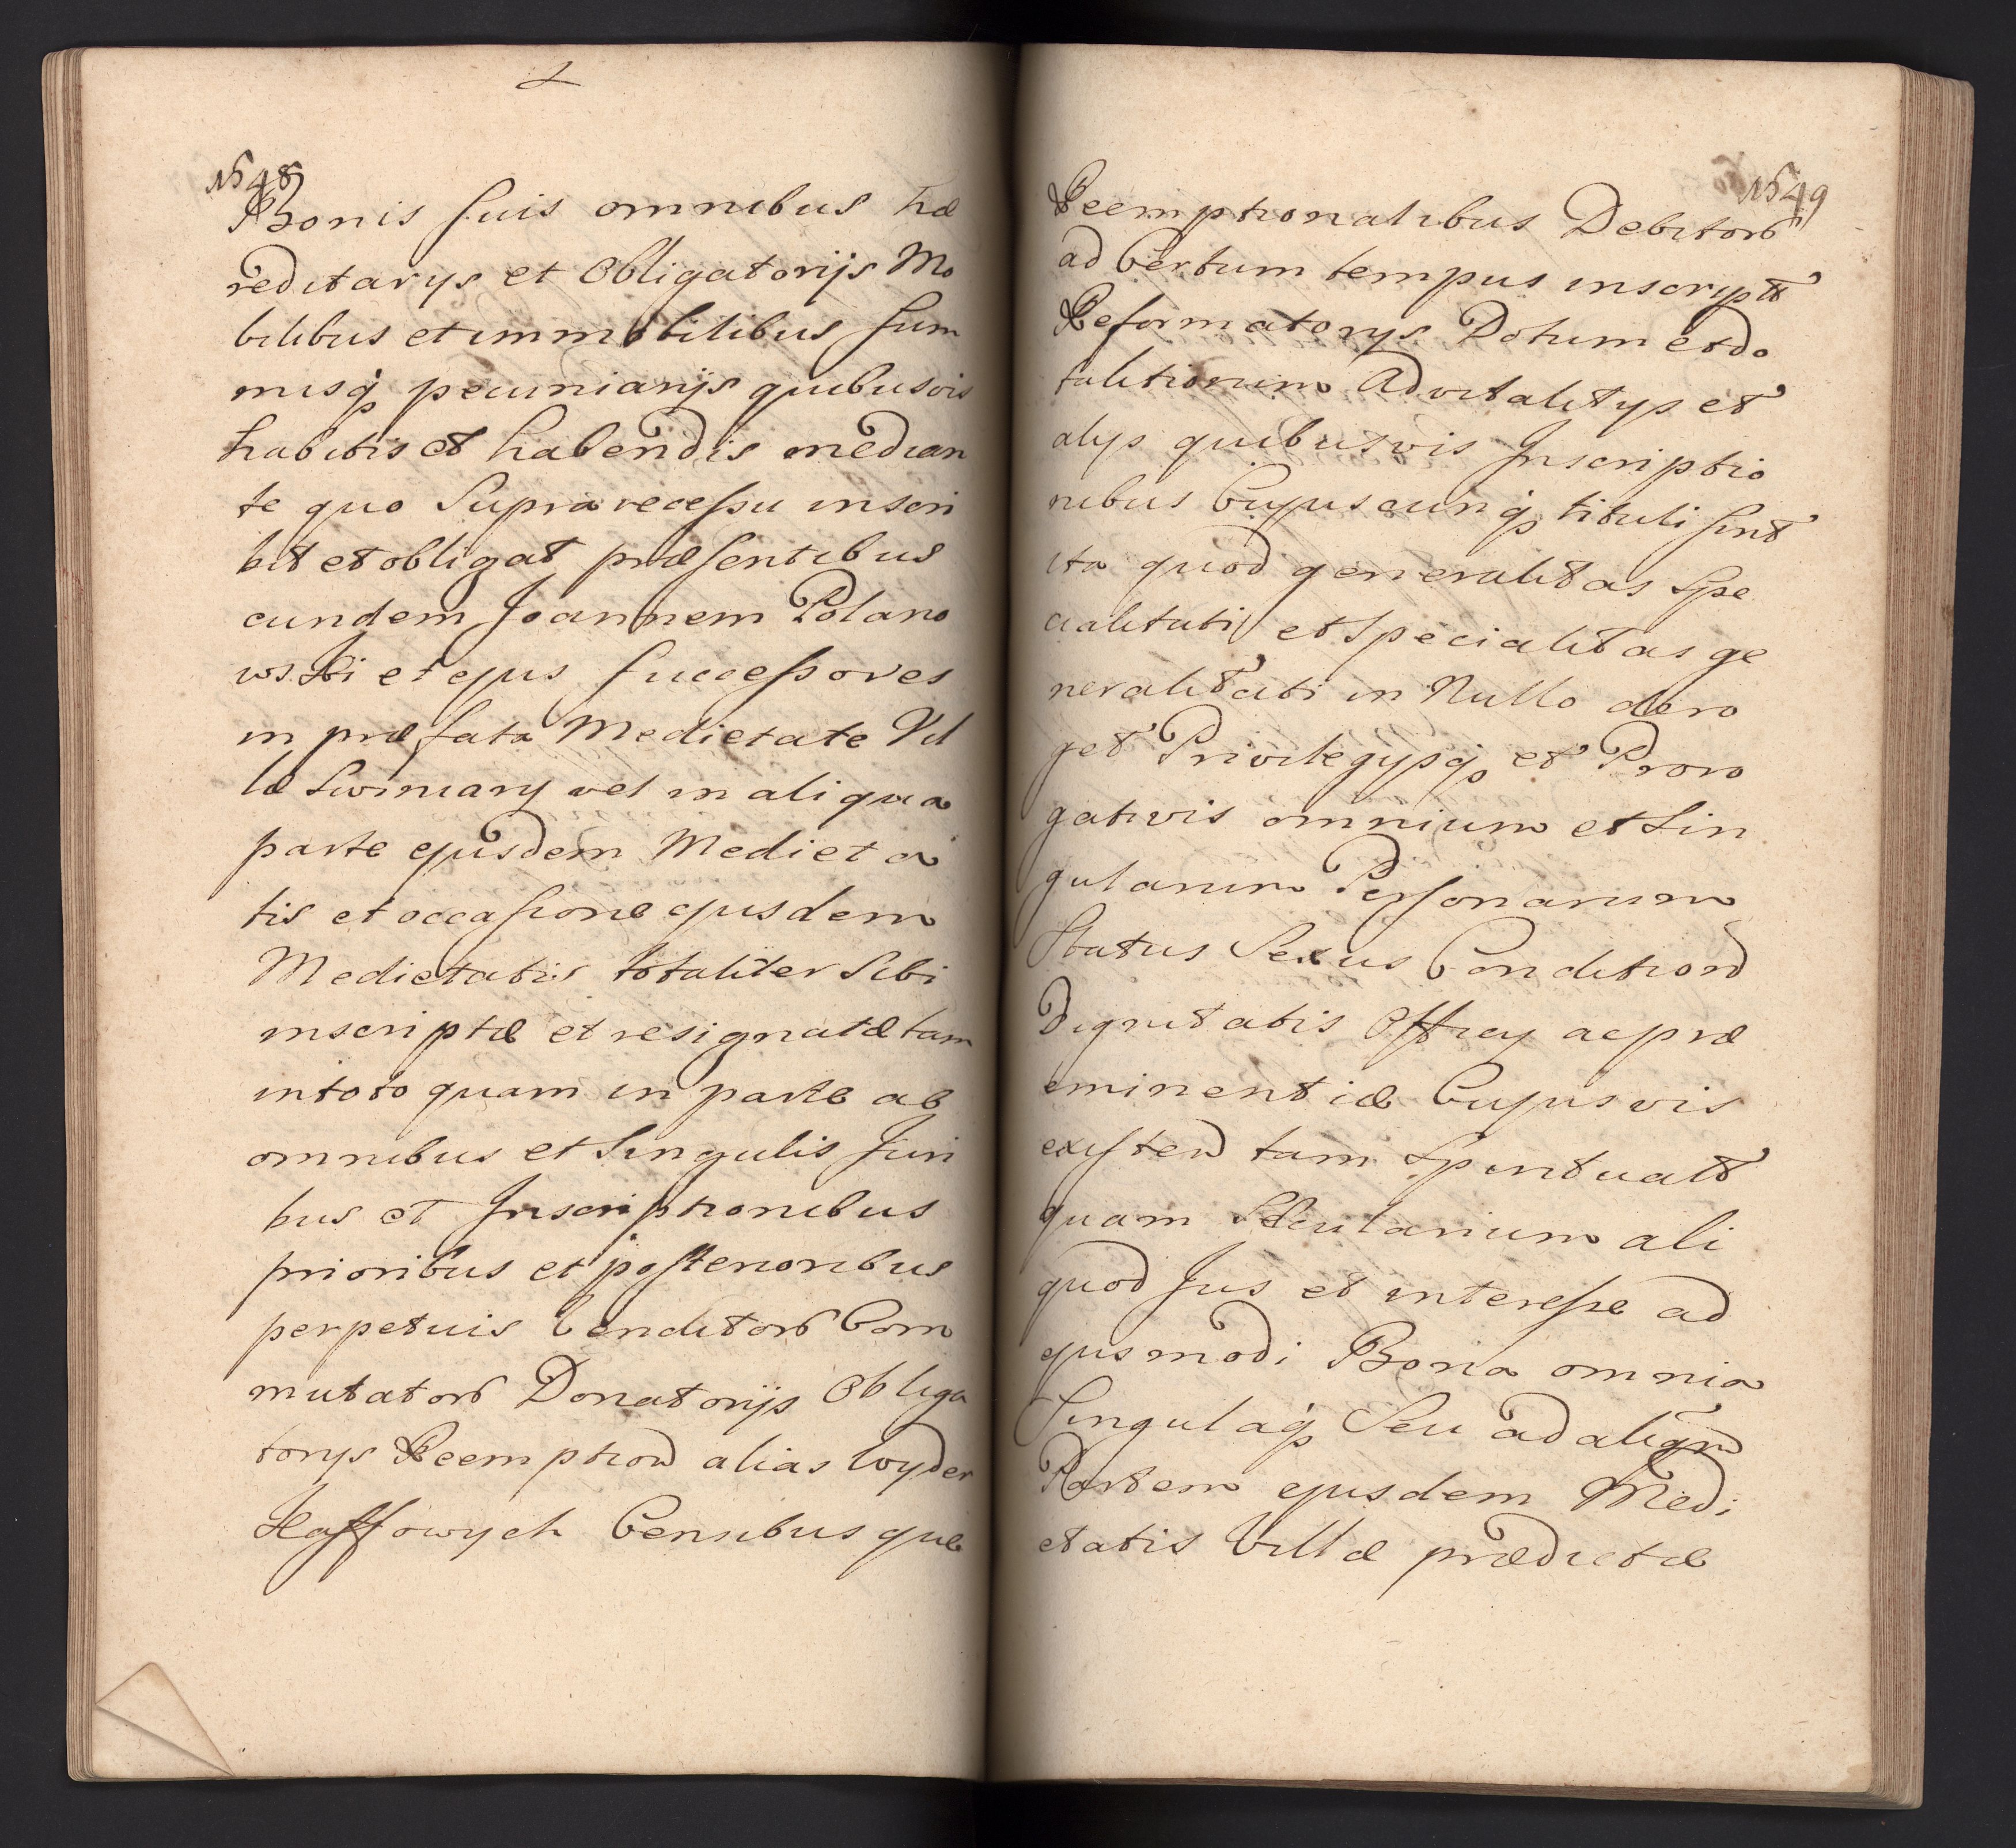 1548
Bonis suis omnibus hæ
reditarys et Obligatorijs Mo
bilibus et immobilibus sum
misq pecuniarijs quibusvis
habitis et habendis median
te quo Supra recessu inscri
bit et obligat præsentibus
eundem Joannem Polano
wski et ejus successores
in præfata Medietate Vil
læ Swiniary vel in aliqua
parte ejusdem Medieta
tis et occasione ejusdem
Medietatis totaliter Sibi
inscriptæ et resignatæ tam
in toto quam in parte ab
omnibus et Singulis Juri
bus et Inscriptionibus
prioribus et posterioribus
perpetuis Venditorŏ Com
mutatorŏ Donatorijs Obliga
torys Reemption alias Wyder
Kaffowych Censibus que
1549
Reemptionalibus Debitorŏ
ad Certum tempus inscript
Reformatorys Dotum et do
talitiorum Advitalitys et
alys quibusvis Inscriptio
nibus Cujuscunq tituli sint
ita quod generalitas Spe
cialitati et Specialitas ge
neralitati in Nullo dero
get Privilegysq et Prero
gativis omnium et Sin
gularum Personarum
Status Sexus Condition
Dignitatis Officy ac præ
eminentiæ Cujusvis
existen tam Spiritualt
quam Sæcularium ali
quod Jus et interesse ad
ejusmodi Bona omnia
Singulaq Seu ad aliqm
Partem ejusdem Medi
etatis Villæ prædictæ